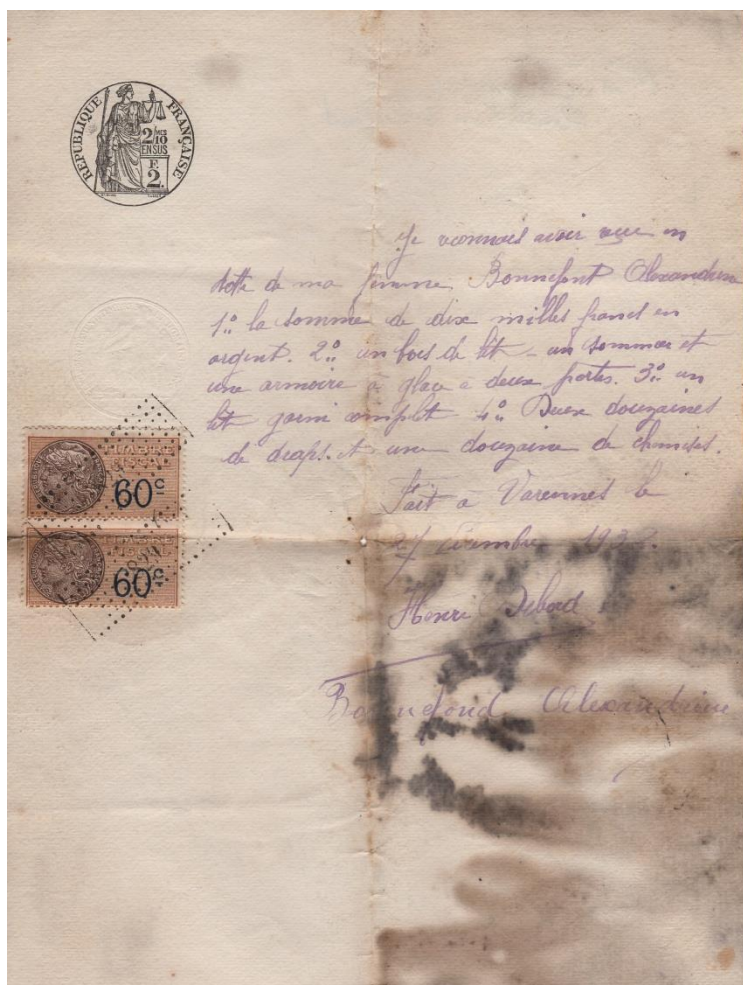 RÉPUBLIQUE FRANÇAISE
2/10 MES
EN SUS
F.
2.
Je reconnais avoir reçu en
dotte de ma femme, Bonnefont Alexandrine
1º la somme de dix milles francs en
argent. 2º un bois de lit - un sommier et
une armoire à glace a deux portes. 3º un
lit garni complet 4º Deux douzaines
de draps. et une douzaine de chemises.
Fait a Varennes le
27 décembre 193
Henri Debord
Bonnefond Alexandrine
TIMBRE
60c
TIMBRE
60c